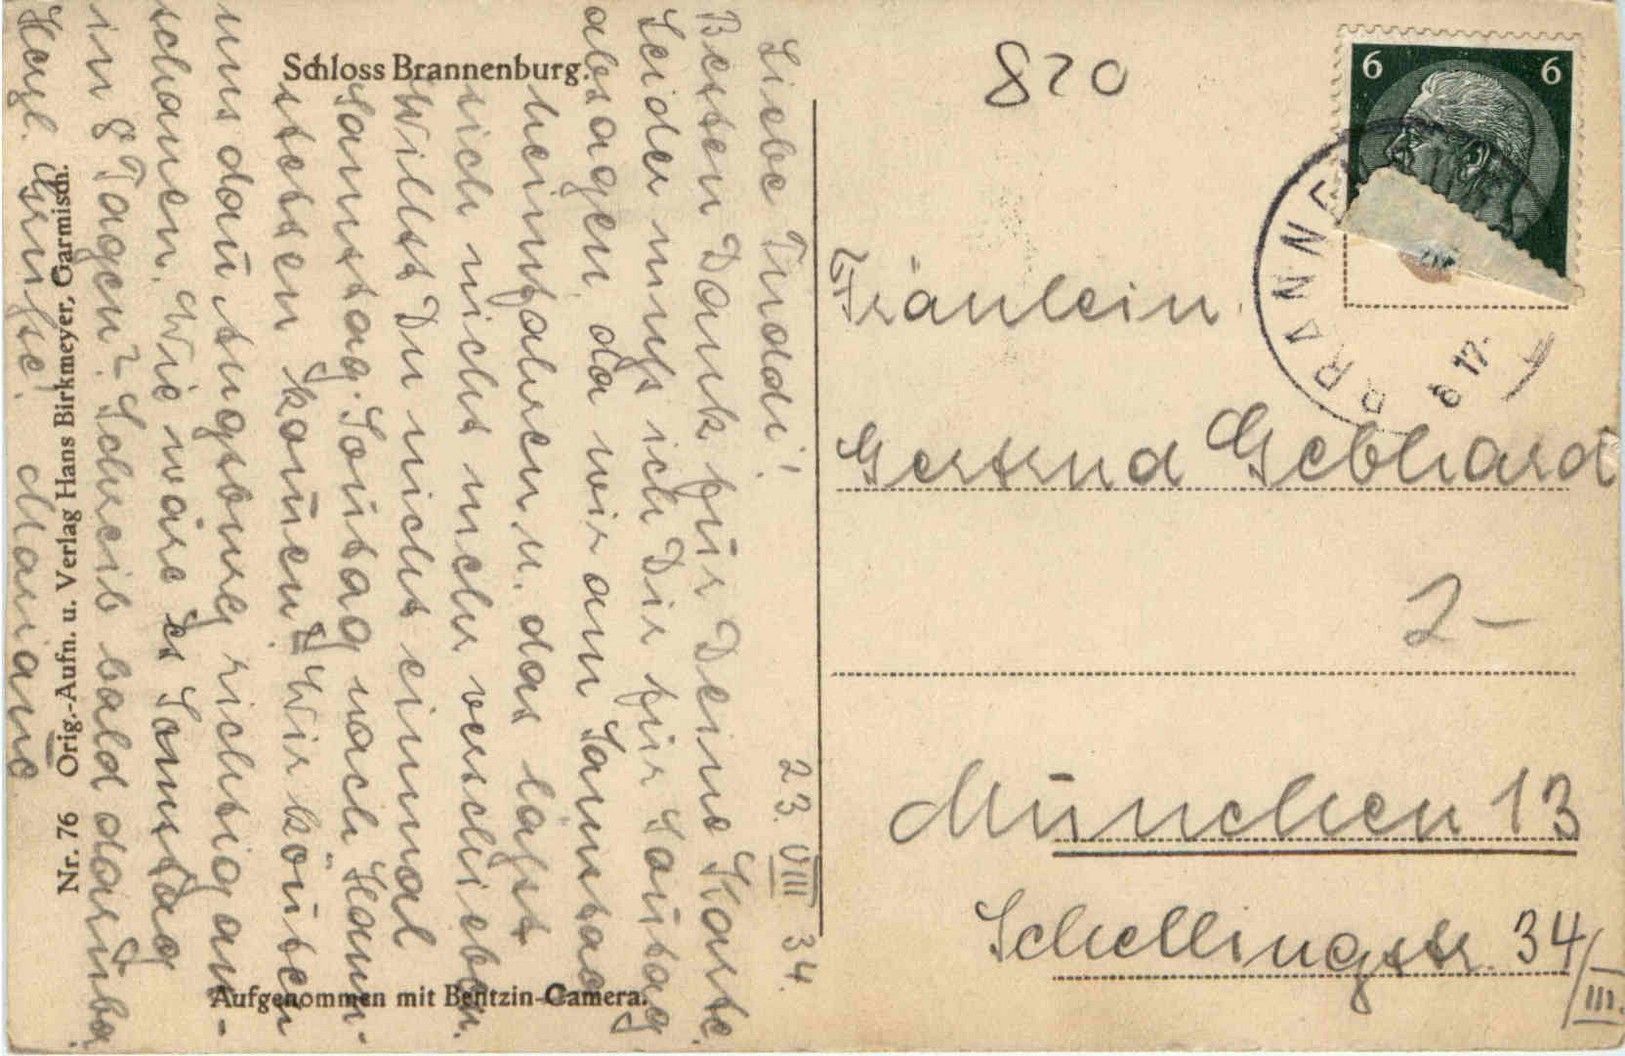 Schloss Brannenburg.
23. VIII 34.
Liebe Tuddi!
Besten Dank für Deine Karte.
Leider muss ich Dir für Soñtag
absagen, da wir am Samstag
heimfahren u. das lässt
sich nicht mehr verschieben.
Willst Du nicht einmal
Samstag-Soñtag nach Hamm-
stetten kom̄en? Wir kön̄ten
uns dan̄ Augsburg richtig an-
schauen. Wie wäre es Samstag
in 8 Tagen? Schreib bald darüber.
Herzl. Grüsse! Mariane
Nr. 76 Orig.-Aufn. u. Verlag Hans Birkmeyer, Garmisch.
Aufgenommen mit Bentzin-Camera.
820
6 6
BRANNE
8 17-
Fräulein
Gertrud Gebhard
2-
München 13
Schellingstr. 34/III.